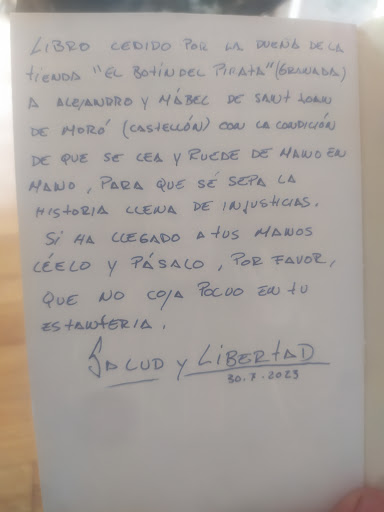 LIBRO CEDIDO POR LA DUEÑA DE LA
tienda "EL BOTIN DEL PIRATA" (GRANADA)
A ALEJANDRO Y MÁBEL DE SANT JOAN
DE MORÓ (CASTELLÓN) CON LA CONDICIÓN
DE QUE SE LEA Y RUEDE DE MANO EN
MANO, PARA QUE SÉ SEPA LA
HISTORIA LLENA DE INJUSTICIAS.
SI HA LLEGADO A TUS MANOS
LÉELO Y PÁSALO, POR FAVOR,
QUE NO COJA POLVO EN TU
ESTANTERIA.
SALUD Y LIBERTAD
30.7.2023